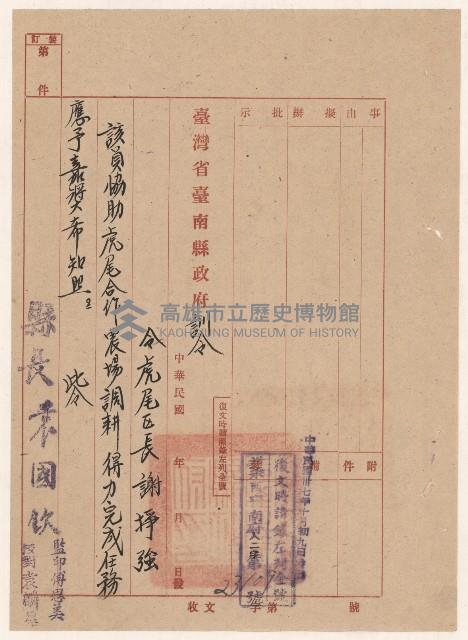 事由
擬辦
批示
附件
備考
臺灣省臺南縣政府訓令
中華民國　年　月　日發
復文時請錄左列全號
中華民國卅七年十月初九日
復文時請錄左列全號
字第　號
收文　字第　號
令虎尾區長謝掙強
該員協助虎尾合作農場調耕得力完成任務
應予嘉獎希知照
此令
縣長袁國欽
監印傅思美
校對袁
裝訂
第　件
高雄市立歷史博物館
KAOHSIUNG MUSEUM OF HISTORY